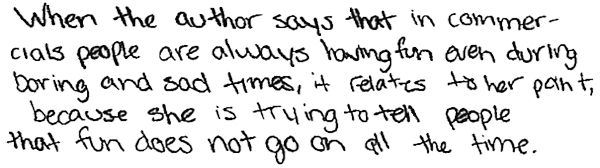 When the author says that in commer-
cials people are always having fun even during
boring and sad times, it relates to her point,
because she is trying to tell people
that fun does not go on all the time.